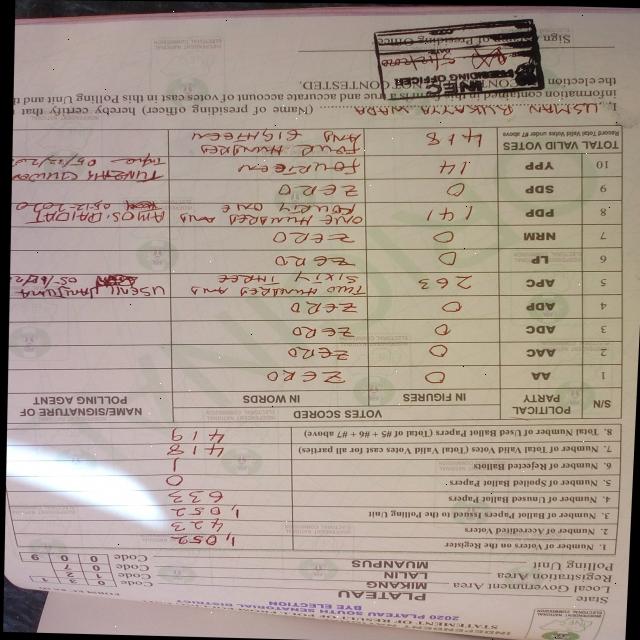 STATEMENT OF RESULT OF POLL
2020 PLATEAU SOUTH SENATORIAL DISTRICT
BYE ELECTION
State PLATEAU
Local Government Area MIKANG Code 3 1
Registration Area LALIN Code
Polling Unit MUANPUS Code 0 0 9
1. Number of Voters on the Register 1,052
2. Number of Accredited Voters 423
3. Number of Ballot Papers Issued to the Polling Unit 1,052
4. Number of Unused Ballot Papers 633
5. Number of Spoiled Ballot Papers 0
6. Number of Rejected Ballots 1
7. Number of Total Valid Votes (Total Valid Votes cast for all parties) 418
8. Total Number of Used Ballot Papers (Total of #5 + #6 + #7 above) 419
S/N POLITICAL PARTY VOTES SCORED NAME/SIGNATURE OF POLLING AGENT
IN FIGURES IN WORDS
1 AA 0 ZERO
2 AAC 0 ZERO
3 ADC 0 ZERO
4 ADP 0 ZERO
5 APC 263 TWO HUNDRED AND SIXTY THREE
6 LP 0 ZERO
7 NRM 0 ZERO
8 PDP 141 ONE HUNDRED AND FOURTY ONE
9 SDP 0 ZERO
10 YPP 14 FOURTEEN
TOTAL VALID VOTES 418 FOUR HUNDRED AND EIGHTEEN
Record Total Valid Votes under #7 above
I, USMAN RUKAYYA (Name of presiding officer) hereby certify that
information contained in this form is a true and accurate account of votes cast in this Polling Unit and
the election CONTESTED/NOT CONTESTED.
INEC
PRESIDING OFFICER
Sign of Presiding Officer